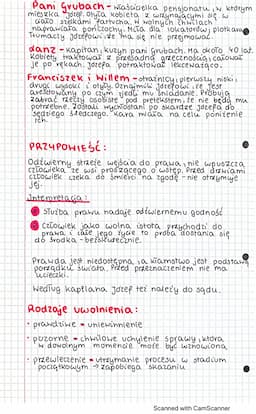 Pani Grubach - właścicielka pensjonatu, w którym
mieszka Józef. Otyła kobieta z wrzynającymi się w
ciało szelkami fartucha. W wolnych chwilach
naprawiała pończochy. Miła dla lokatorów; plotkara
Tłumaczy Józefowi, że ma się nie przejmować.
Lanz - kapitan; kuzyn pani Grubach. Ma około 40 lat.
Kobiety traktował z przesadną grzecznością, całował
je po rękach. Józefa potraktował lekceważąco.
Franciszek i Willem - strażnicy; pierwszy niski;
drugi wysoki i otyły. Oznajmili Józefowi, że jest
aresztowany po czym zjedli mu śniadanie. Próbują
zabrać rzeczy osobiste pod pretekstem, że nie będą mu
potrzebne. Zostali wychłostani po skardze Józefa do
sędziego śledczego. Kara miała na celu poniżenie
ich.
PRZYPOWIEŚĆ:
Odźwierny strzeże wejścia do prawa, nie wpuszcza
człowieka ze wsi proszącego o wstęp. Przed drzwiami
człowiek czeka do śmierci na zgodę - nie otrzymuje
jej.
Interpretacja:
Służba prawu nadaje odźwiernemu godność
Człowiek jako wolna istota, przychodzi do
prawa i całe jego życie to próba dostania się
do środka - bezskutecznie.
Prawda jest niedostępna, a kłamstwo jest podstawą
porządku świata. Przed przeznaczeniem nie ma
ucieczki.
Według kapelana Józef też należy do sądu.
Rodzaje uwolnienia:
• prawdziwe = uniewinnienie
• pozorne = chwilowe uchylenie sprawy, która
w dowolnym momencie może być wznowiona
• przewleczenie = utrzymanie procesu w stadium
początkowym → zapobiega skazaniu
Scanned with CamScanner